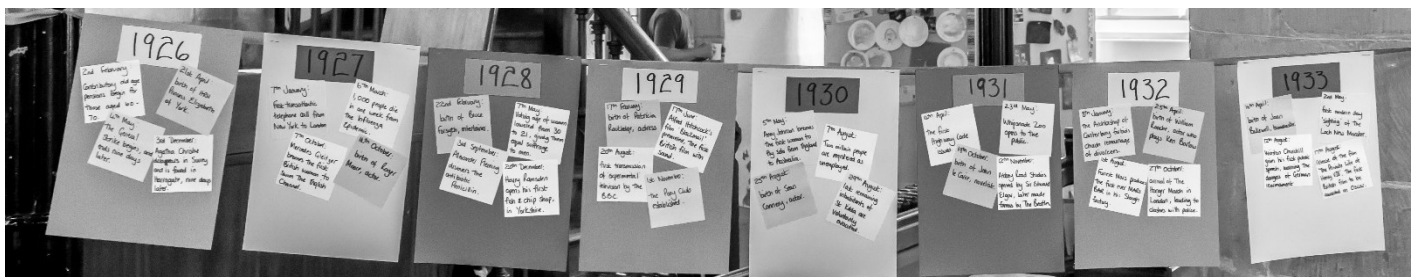 1926
2nd February:
Contributory old age
pensions begin for
those aged 65-
70.
21st April:
birth of HRH
Princess Elizabeth
of York.
4th May:
The General
Strike begins, and
ends nine days
later.
3rd December:
Agatha Christie
disappears in Surrey
and is found in
Harrogate, nine days
later.
1927
7th January:
first transatlantic
telephone call from
New York to London
6th March:
1,000 people die
in one week from
the Influenza
Epidemic.
7th October:
Mercedes Gleitze
becomes the first
British woman to
swim the English
Channel.
14th October:
birth of Roger
Moore, actor.
1928
22nd February:
birth of Bruce
Forsyth, entertainer.
7th May:
Voting age of women
lowered from 30
to 21, giving them
equal suffrage
to men.
September:
Alexander Fleming
discovers the
antibiotic
Penicillin.
20th December:
Harry Ramsden
opens his first
fish & chip shop,
in Yorkshire.
1929
17th February:
birth of Patricia
Routledge, actress
17th June:
Alfred Hitchcock's
film 'Blackmail'
premieres. The first
British film with
sound.
20th August:
first transmission
of experimental
television by the
BBC.
1st November:
The Pony Club
established.
1930
5th May:
Amy Johnson becomes
the first woman to
fly solo from England
to Australia.
7th August:
Two million people
are reported as
unemployed.
25th August:
birth of Sean
Connery, actor.
29th August:
last remaining
inhabitants of
St Kilda are
voluntarily
evacuated.
1931
14th April:
The first
Highway Code
issued.
23rd May:
Whipsnade Zoo
opens to the
public.
19th October:
birth of John
le Carré, novelist
12th November:
Abbey Road Studios
opened by Sir Edward
Elgar, later made
famous by The Beatles.
1932
8th January:
The Archbishop of
Canterbury forbids
church remarriage
of divorcees.
25th April:
birth of William
Roache, actor who
plays Ken Barlow
1st August:
Forrest Mars produces
the first ever Mars
Bar in his Slough
factory
27th October:
arrival of The
Hunger March in
London, leading to
clashes with police.
1933
14th April:
birth of Joan
2nd May:
first modern day
sighting of The
Loch Ness Monster
12th August:
Winston Churchill
gives his first public
speech, warning of the
dangers of German
rearmament
17th August:
release of the film
'The Private Life of
Henry VIII', the first
British film to win
an Oscar